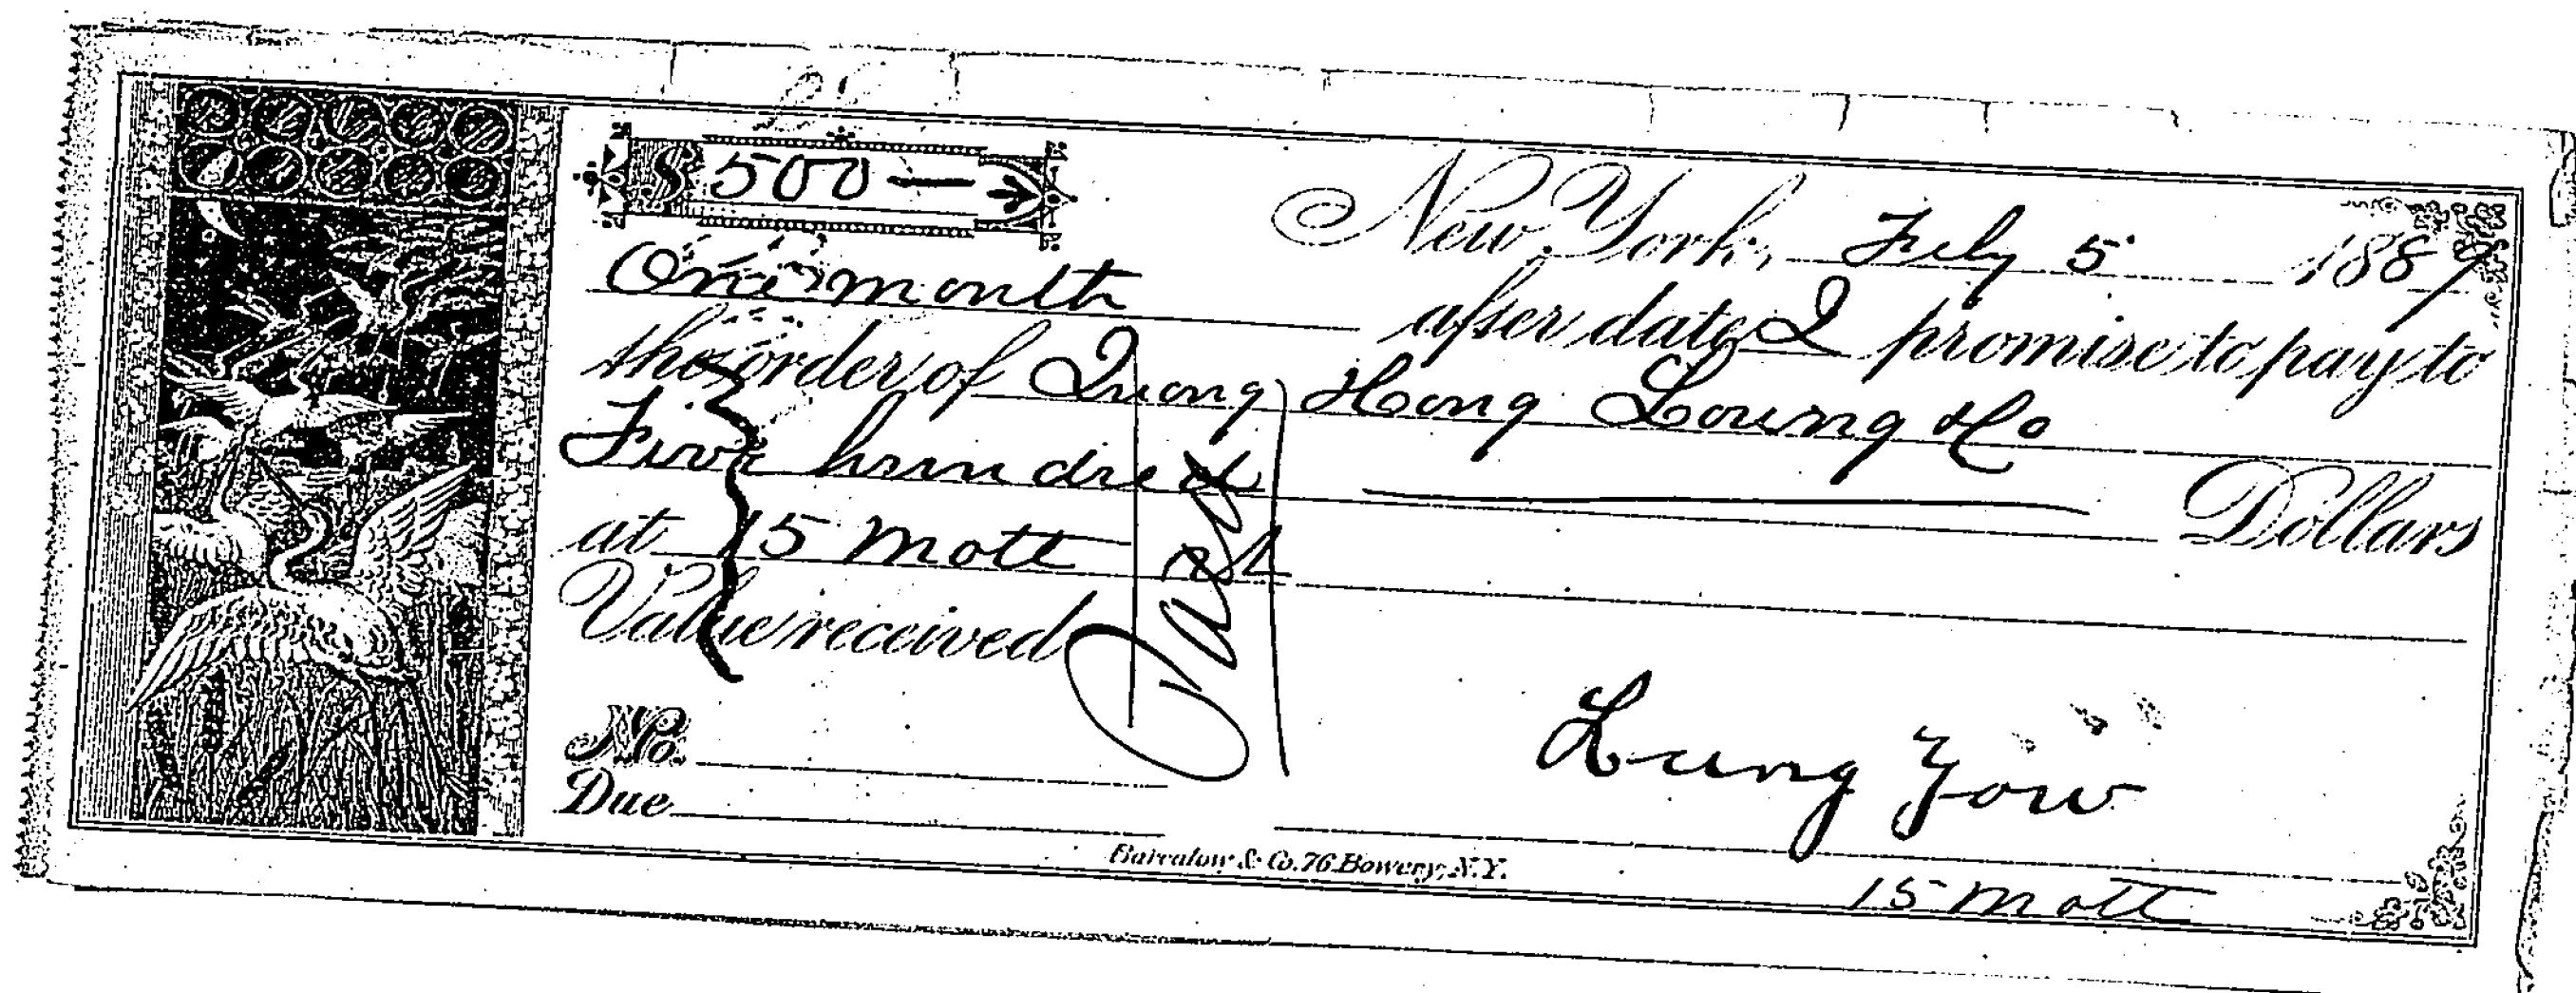 $ 500 —
New York, Feby 5 1889
One month after date I promise to pay to
the order of Quong Hong Loung & Co
Five hundred Dollars
at 15 Mott St
Value received
Paid
No.
Lung Yow
Due
& Co. 76 Bowery, N.Y.
15 Mott